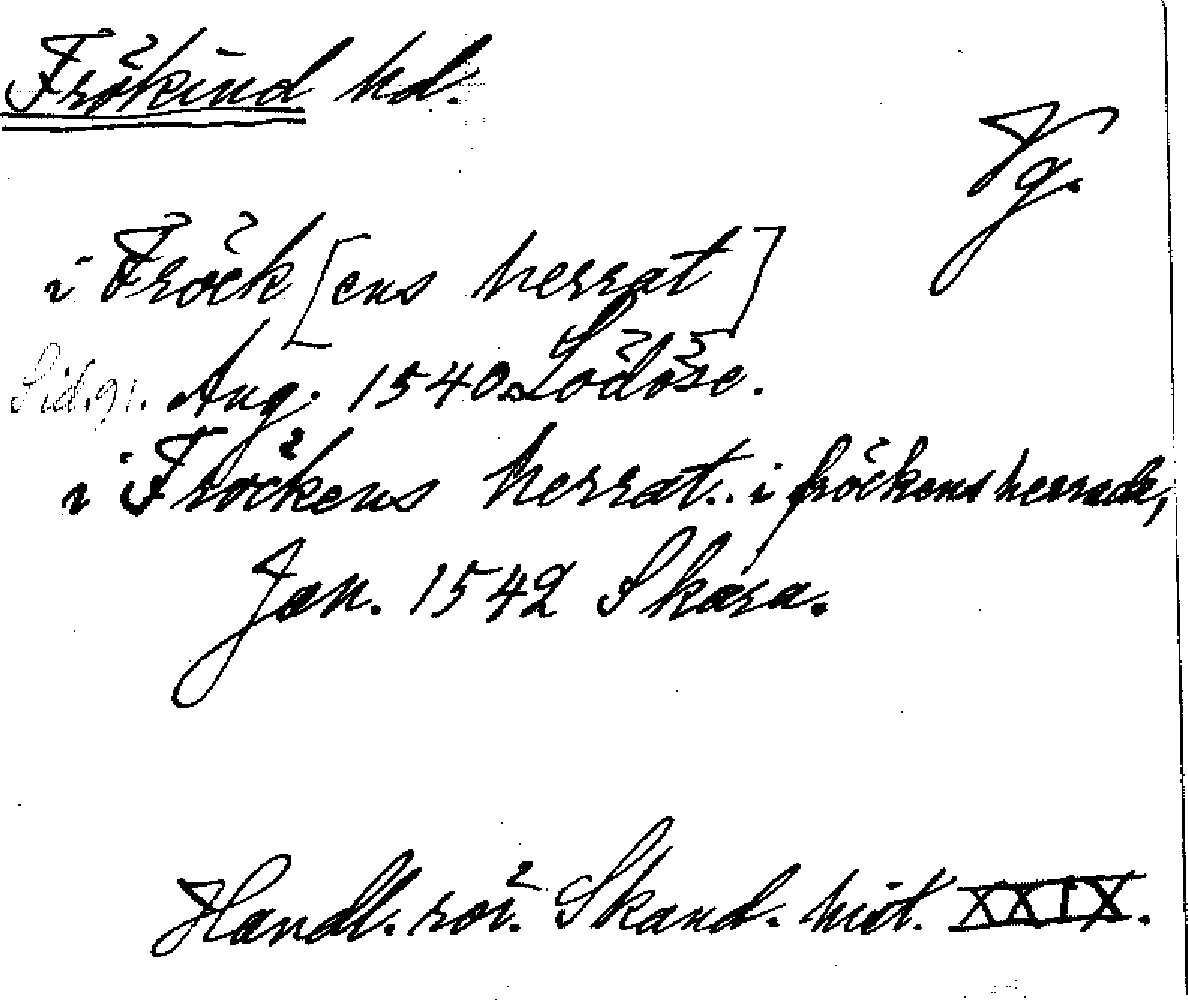 Frökind hd.
Vg.
i Fröck [ens herrat]
Sid. 91. Aug. 1540 Lödöse.
i Fröckens herrat.. i fröckens herrade,
Jan. 1542 Skara.
Handl. rör. Skand. hist. XXIX.